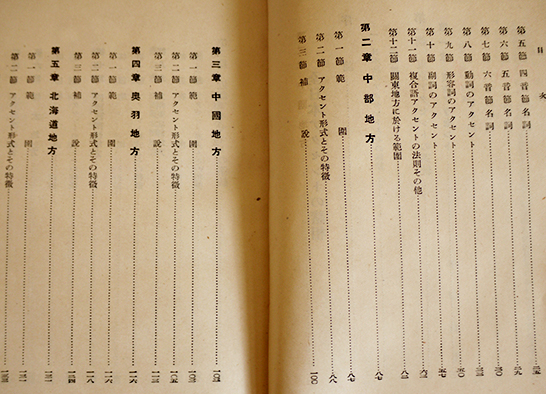 目次
第五節 四音節名詞
第六節 五音節名詞
第七節 六音節名詞
第八節 動詞のアクセント
第九節 形容詞のアクセント
第十節 副詞のアクセント
第十一節 複合語アクセントの法則その他
第十二節 關東地方に於ける範圍
第二章 中部地方
第一節 範圍
第二節 アクセント形式とその特徴
第三節 補說 一〇〇
第三章 中國地方
第一節 範圍
第二節 アクセント形式とその特徴
第三節 補說
第四章 奥羽地方
第一節 範圍
第二節 アクセント形式とその特徴
第三節 補說
第五章 北海道地方
第一節 範圍
第二節 アクセント形式とその特徴